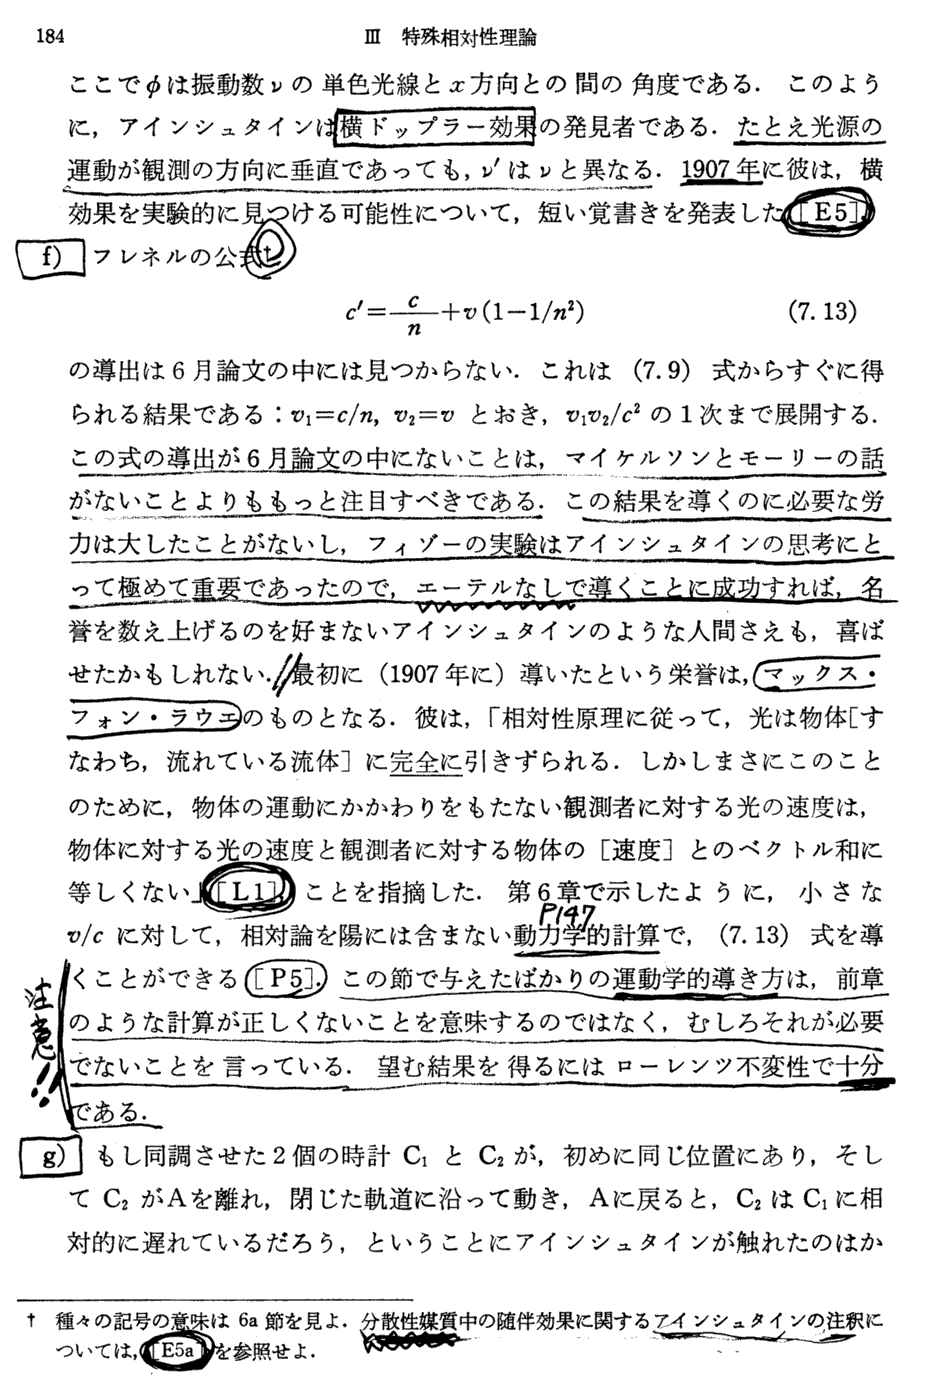 184
III 特殊相対性理論
ここでφは振動数νの単色光線とx方向との間の角度である．このよう
に，アインシュタインは横ドップラー効果の発見者である．たとえ光源の
運動が観測の方向に垂直であっても，ν′はνと異なる．1907年に彼は，横
効果を実験的に見つける可能性について，短い覚書きを発表した［E5］．
f) フレネルの公式†
c′=c/n+v(1−1/n²) (7.13)
の導出は6月論文の中には見つからない．これは (7.9) 式からすぐに得
られる結果である：v₁=c/n, v₂=v とおき，v₁v₂/c² の1次まで展開する．
この式の導出が6月論文の中にないことは，マイケルソンとモーリーの話
がないことよりももっと注目すべきである．この結果を導くのに必要な労
力は大したことがないし，フィゾーの実験はアインシュタインの思考にと
って極めて重要であったので，エーテルなしで導くことに成功すれば，名
誉を数え上げるのを好まないアインシュタインのような人間さえも，喜ば
せたかもしれない．最初に (1907年に) 導いたという栄誉は，マックス・
フォン・ラウエのものとなる．彼は，「相対性原理に従って，光は物体［す
なわち，流れている流体］に完全に引きずられる．しかしまさにこのこと
のために，物体の運動にかかわりをもたない観測者に対する光の速度は，
物体に対する光の速度と観測者に対する物体の［速度］とのベクトル和に
等しくない」［L1］，ことを指摘した．第6章で示したように，小さな
P147
v/c に対して，相対論を陽には含まない動力学的計算で，(7.13) 式を導
くことができる［P5］．この節で与えたばかりの運動学的導き方は，前章
のような計算が正しくないことを意味するのではなく，むしろそれが必要
でないことを言っている．望む結果を得るにはローレンツ不変性で十分
である．
注意!!
g) もし同調させた2個の時計 C₁ と C₂ が，初めに同じ位置にあり，そし
て C₂ がAを離れ，閉じた軌道に沿って動き，Aに戻ると，C₂ は C₁ に相
対的に遅れているだろう，ということにアインシュタインが触れたのはか
† 種々の記号の意味は 6a 節を見よ．分散性媒質中の随伴効果に関するアインシュタインの注釈に
ついては，［E5a］を参照せよ．